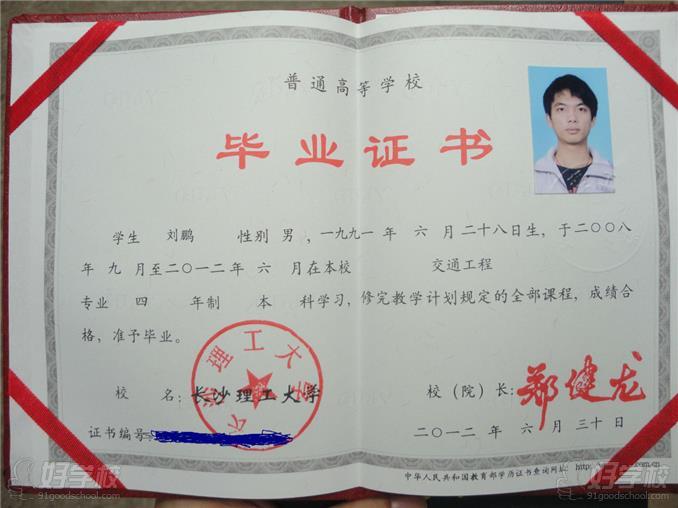 普通高等学校
毕业证书
学生 刘鹏 性别 男，一九九一年 六 月二十八日生，于二〇〇八
年 九 月至二〇一二年 六 月在本校 交通工程
专业 四 年制 本 科学习，修完教学计划规定的全部课程，成绩合
格，准予毕业。
长沙理工大学
校 名：长沙理工大学
校（院）长：郑健龙
证书编号：
二〇一二年 六 月 三十 日
中华人民共和国教育部学历证书查询网址：http:
好学校
91goodschool.com
好学校
91goodschool.com